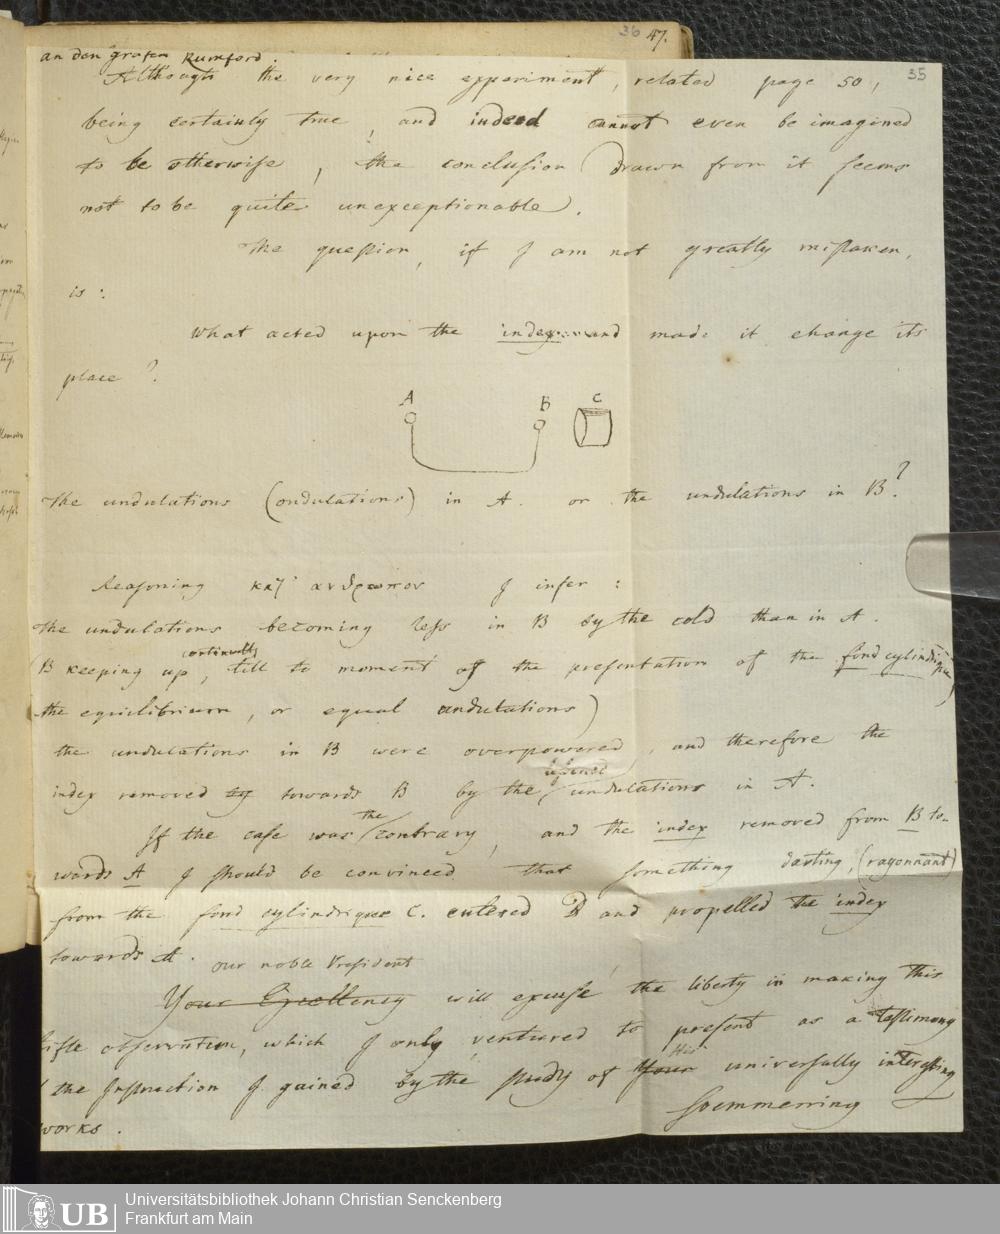 36 47.
an den Grafen Rumford
35
Although the very nice experiment, related page 50,
being certainly true, and indeed cannot even be imagined
to be otherwise, the conclusion drawn from it seems
not to be quite unexceptionable.
The question, if I am not greatly mistaken,
is:
What acted upon the index and made it change its
place?
A B C
The undulations (ondulations) in A. or the undulations in B?
Reasoning κατ' ανθρωπον I infer:
The undulations becoming less in B by the cold than in A.
continually
(B keeping up, till to moment of the presentation of the fond cylindrique
the equilibrium, or equal undulations)
the undulations in B were overpowered, and therefore the
index removed by towards B by the undulations in A.
the
If the case was contrary, and the index removed from B to-
wards A I should be convinced that something darting, (rayonnant)
from the fond cylindrique C. entered B and propelled the index
towards A.
our noble President
Your Excellency will excuse the liberty in making this
little observation, which I only ventured to present as a testimony
His
the Instruction I gained by the study of Your universally interesting
works.
Soemmerring
UB Universitätsbibliothek Johann Christian Senckenberg
Frankfurt am Main